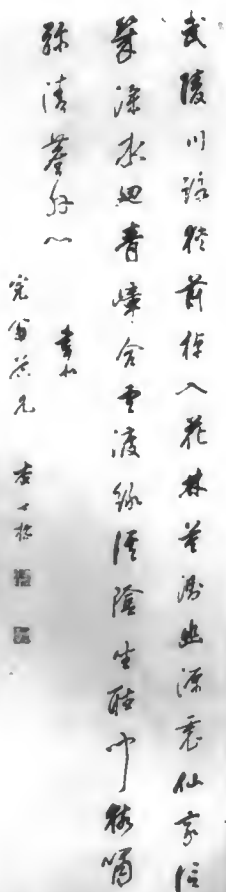 武陵川路狹前棹入花林莫測幽源裏仙家信
幾深水迴青嶂合雲渡綠溪陰坐聽閒猿嘯
彌清塵外心
書似
翁 兄